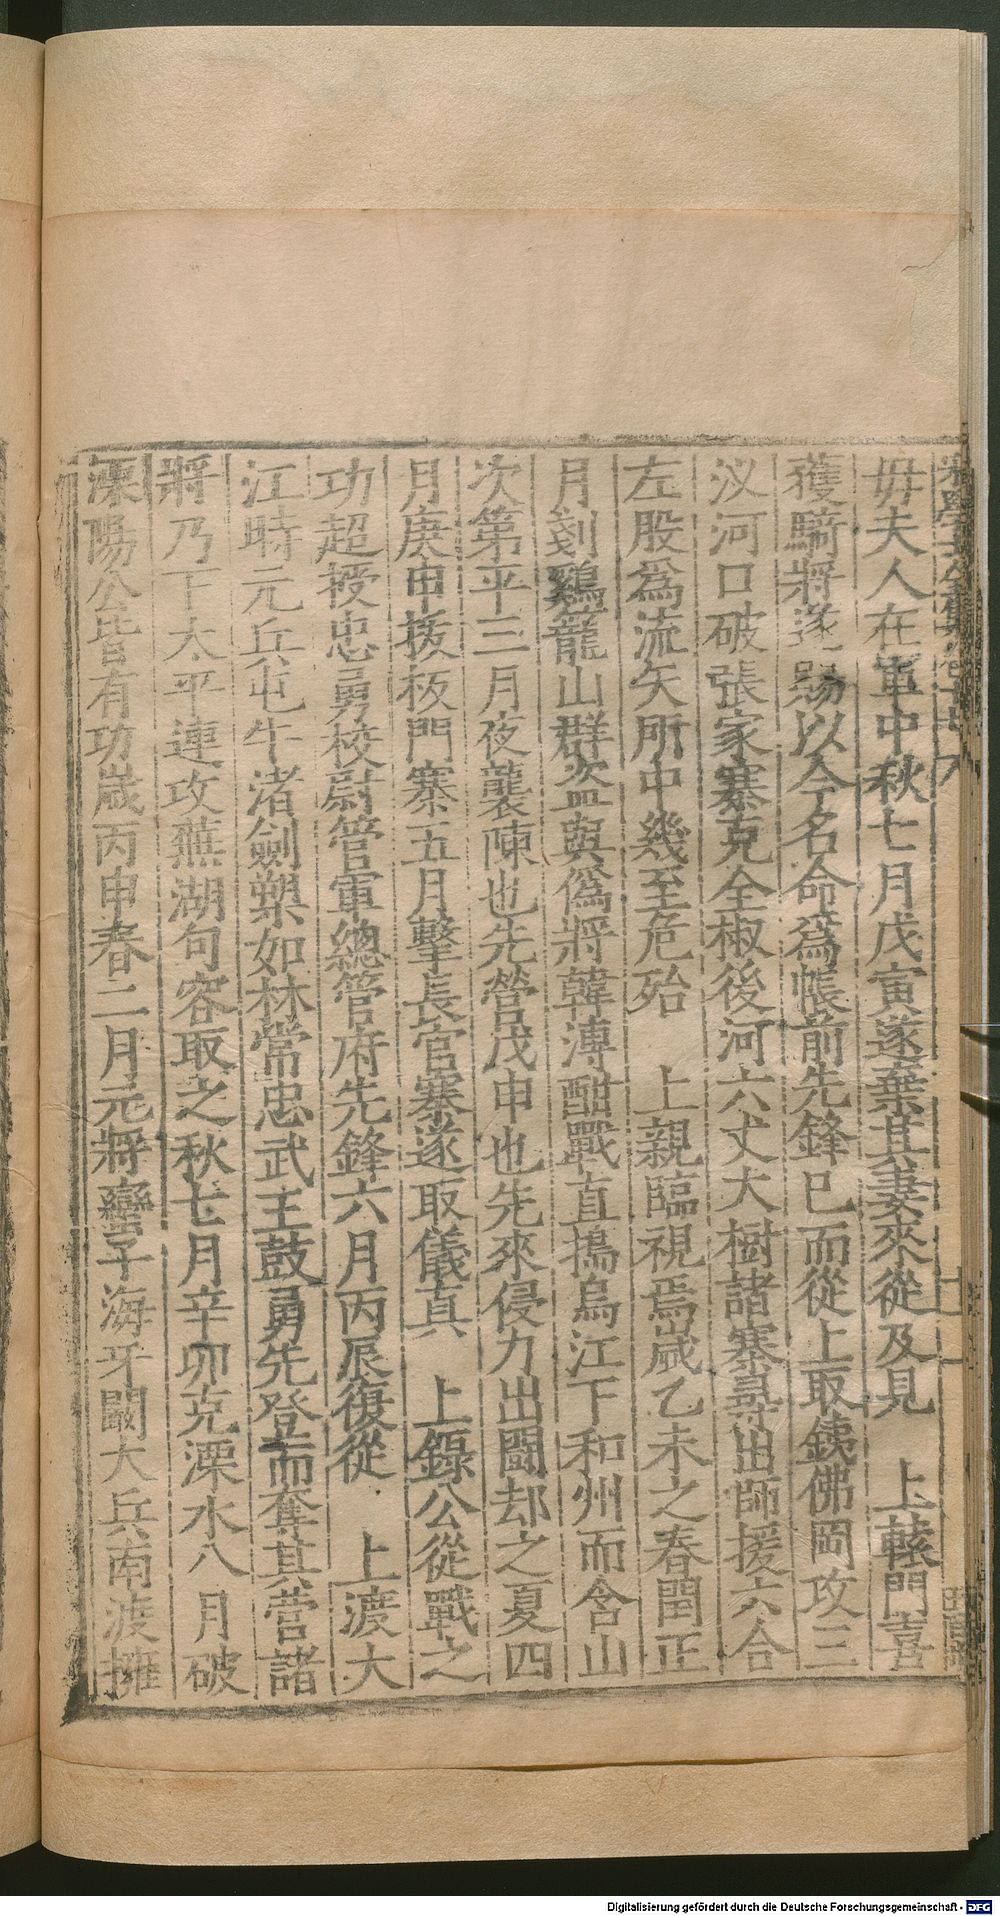 毋夫人在軍中秋七月戊寅遂棄其妻來從及見　上轅門喜
獲驍將遂賜以今名命爲帳前先鋒巳而從上取鐵佛岡攻三
汊河口破張家寨克全椒後河六丈大樹諸寨尋出師援六合
左股爲流矢所中幾至危殆　上親臨視焉歲乙未之春閏正
月刻鷄籠山群盜與僞將韓溥酣戰直擣烏江下和州而含山
次第平三月夜襲陳也先營戊申也先來侵力出鬪却之夏四
月庚申拔板門寨五月擊長官寨遂取儀真　上錄公從戰之
功超授忠勇校尉管軍總管府先鋒六月丙辰復從　上渡大
江時元兵屯牛渚劍槊如林常忠武王鼓勇先登而奪其營諸
將乃下太平連攻蕪湖句容取之秋七月辛卯克溧水八月破
溧陽公皆有功歲丙申春二月元將蠻子海牙闞大兵南渡擁
Digitalisierung gefördert durch die Deutsche Forschungsgemeinschaft - DFG